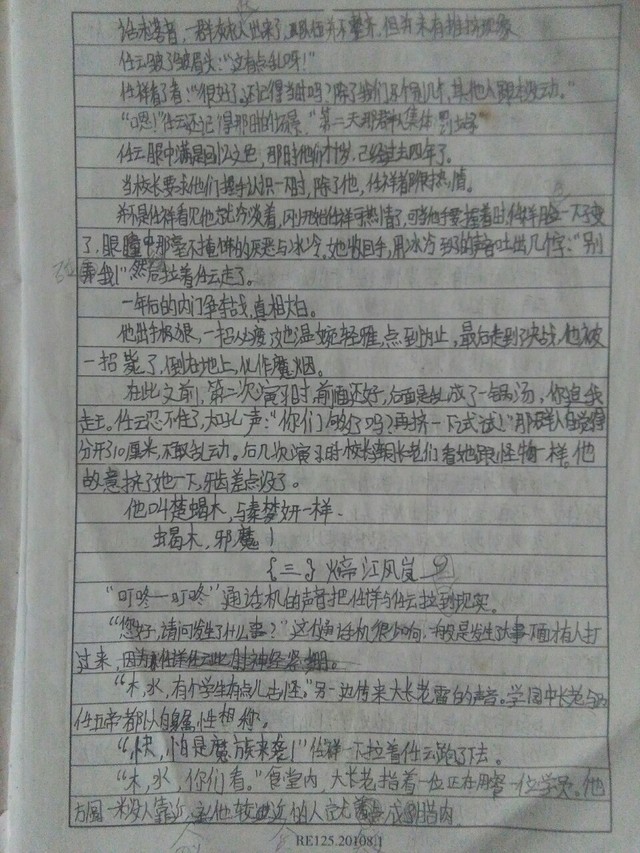 话未落音，一群女人出来了，队伍并不整齐，但并未有推挤现象
任云皱了皱眉头："这有点乱呀！"
任祥看了看："很好了。还记得当时吗？除了我们几个别几个，其他人跟本没动。"
"嗯！"任云还记得那时的场景。"第二天那群人集体罚站
任云眼中满是回忆之色，那时他们才 岁，已经过去四年了。
当校长要求他们握手认识一下时，除了他，任祥看 很热情。
并不是任祥看见他就冷淡着，刚开始任祥可热情了，可当他手要握着时任祥脸一下子变
了，眼瞳中那毫不掩饰的厌恶与冰冷。她收回手，用冰冷到 的声音吐出几个字："别
弄我！"然后拉着任云走了。
一年后的内门争夺战，真相大白。
他出手极狠，一招 温婉轻雅，点到为止，最后走到了决战，他被
一招毙了，倒在地上，化作魔烟。
在此文前，第二次演习时，前面还好，后面是乱成了一锅汤，你追我
走。任云忍不住了，大吼一声："你们够了吗？再挤一下试试！"那群人自觉得
分开了10厘米，不敢乱动。后几次演习时校长朝长老们看她跟怪物一样。他
故意挤了她一下，牙齿差点没了。
他叫楚蝎木，与秦梦妍一样.
蝎木，邪魔！
{三}炼帝江风岚
"叮咚—叮咚"通话机的声音把任祥与任云拉到现实。
"您好，请问发生了什么事？"这个通话机很少响，一般是发生了大事下面才有人打
过来，
"木，水，有个学生有点儿古怪。"另一边传来大长老雷白的声音。学园中长老与
任五帝都以自身属性相称，
"快，怕是魔族来袭！"任祥一下拉着任云跑了下去。
"木，水，你们看。"食堂内，大长老指着一位正在用餐一位学员。他
方圆一米没人靠近， 他较近 的人 成了腊肉
RE125.20108.1